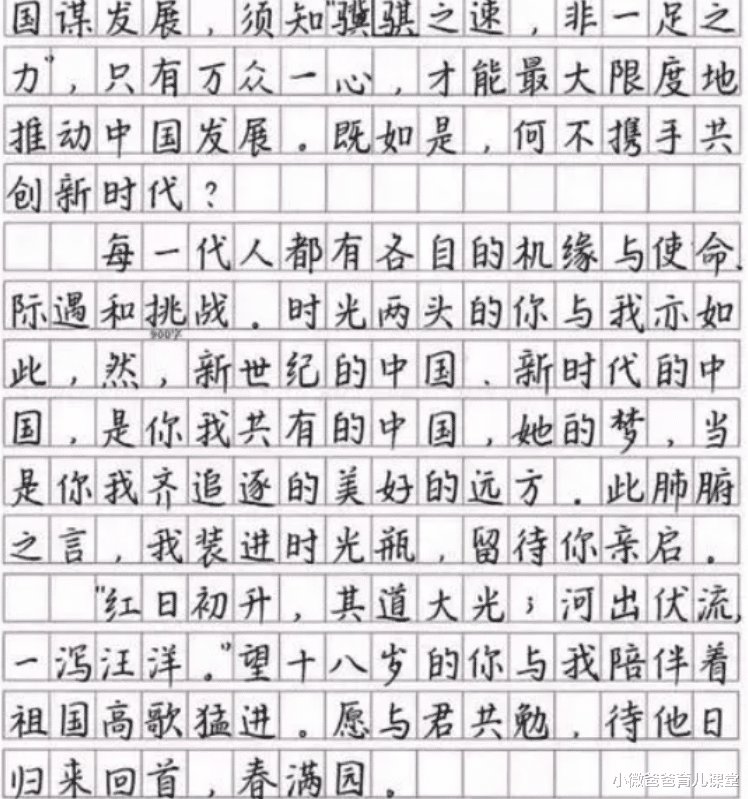 国谋发展，须知"骥骐之速，非一足之
力"，只有万众一心，才能最大限度地
推动中国发展。既如是，何不携手共
创新时代？
每一代人都有各自的机缘与使命、
际遇和挑战。时光两头的你与我亦如
900字
此，然，新世纪的中国、新时代的中
国，是你我共有的中国，她的梦，当
是你我齐追逐的美好的远方。此肺腑
之言，我装进时光瓶，留待你亲启。
"红日初升，其道大光；河出伏流，
一泻汪洋。"望十八岁的你与我陪伴着
祖国高歌猛进。愿与君共勉，待他日
归来回首，春满园。
小微爸爸育儿课堂